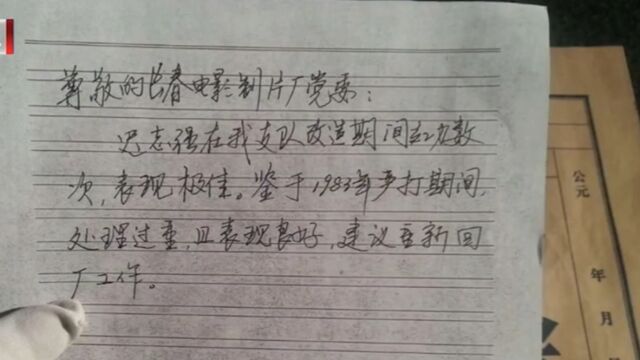 尊敬的长春电影制片厂党委：
迟志强在我支队改造期间立功数
次，表现极佳。鉴于1983年严打期间，
处理过重，且表现良好，建议重新回
厂工作。
公元
年月